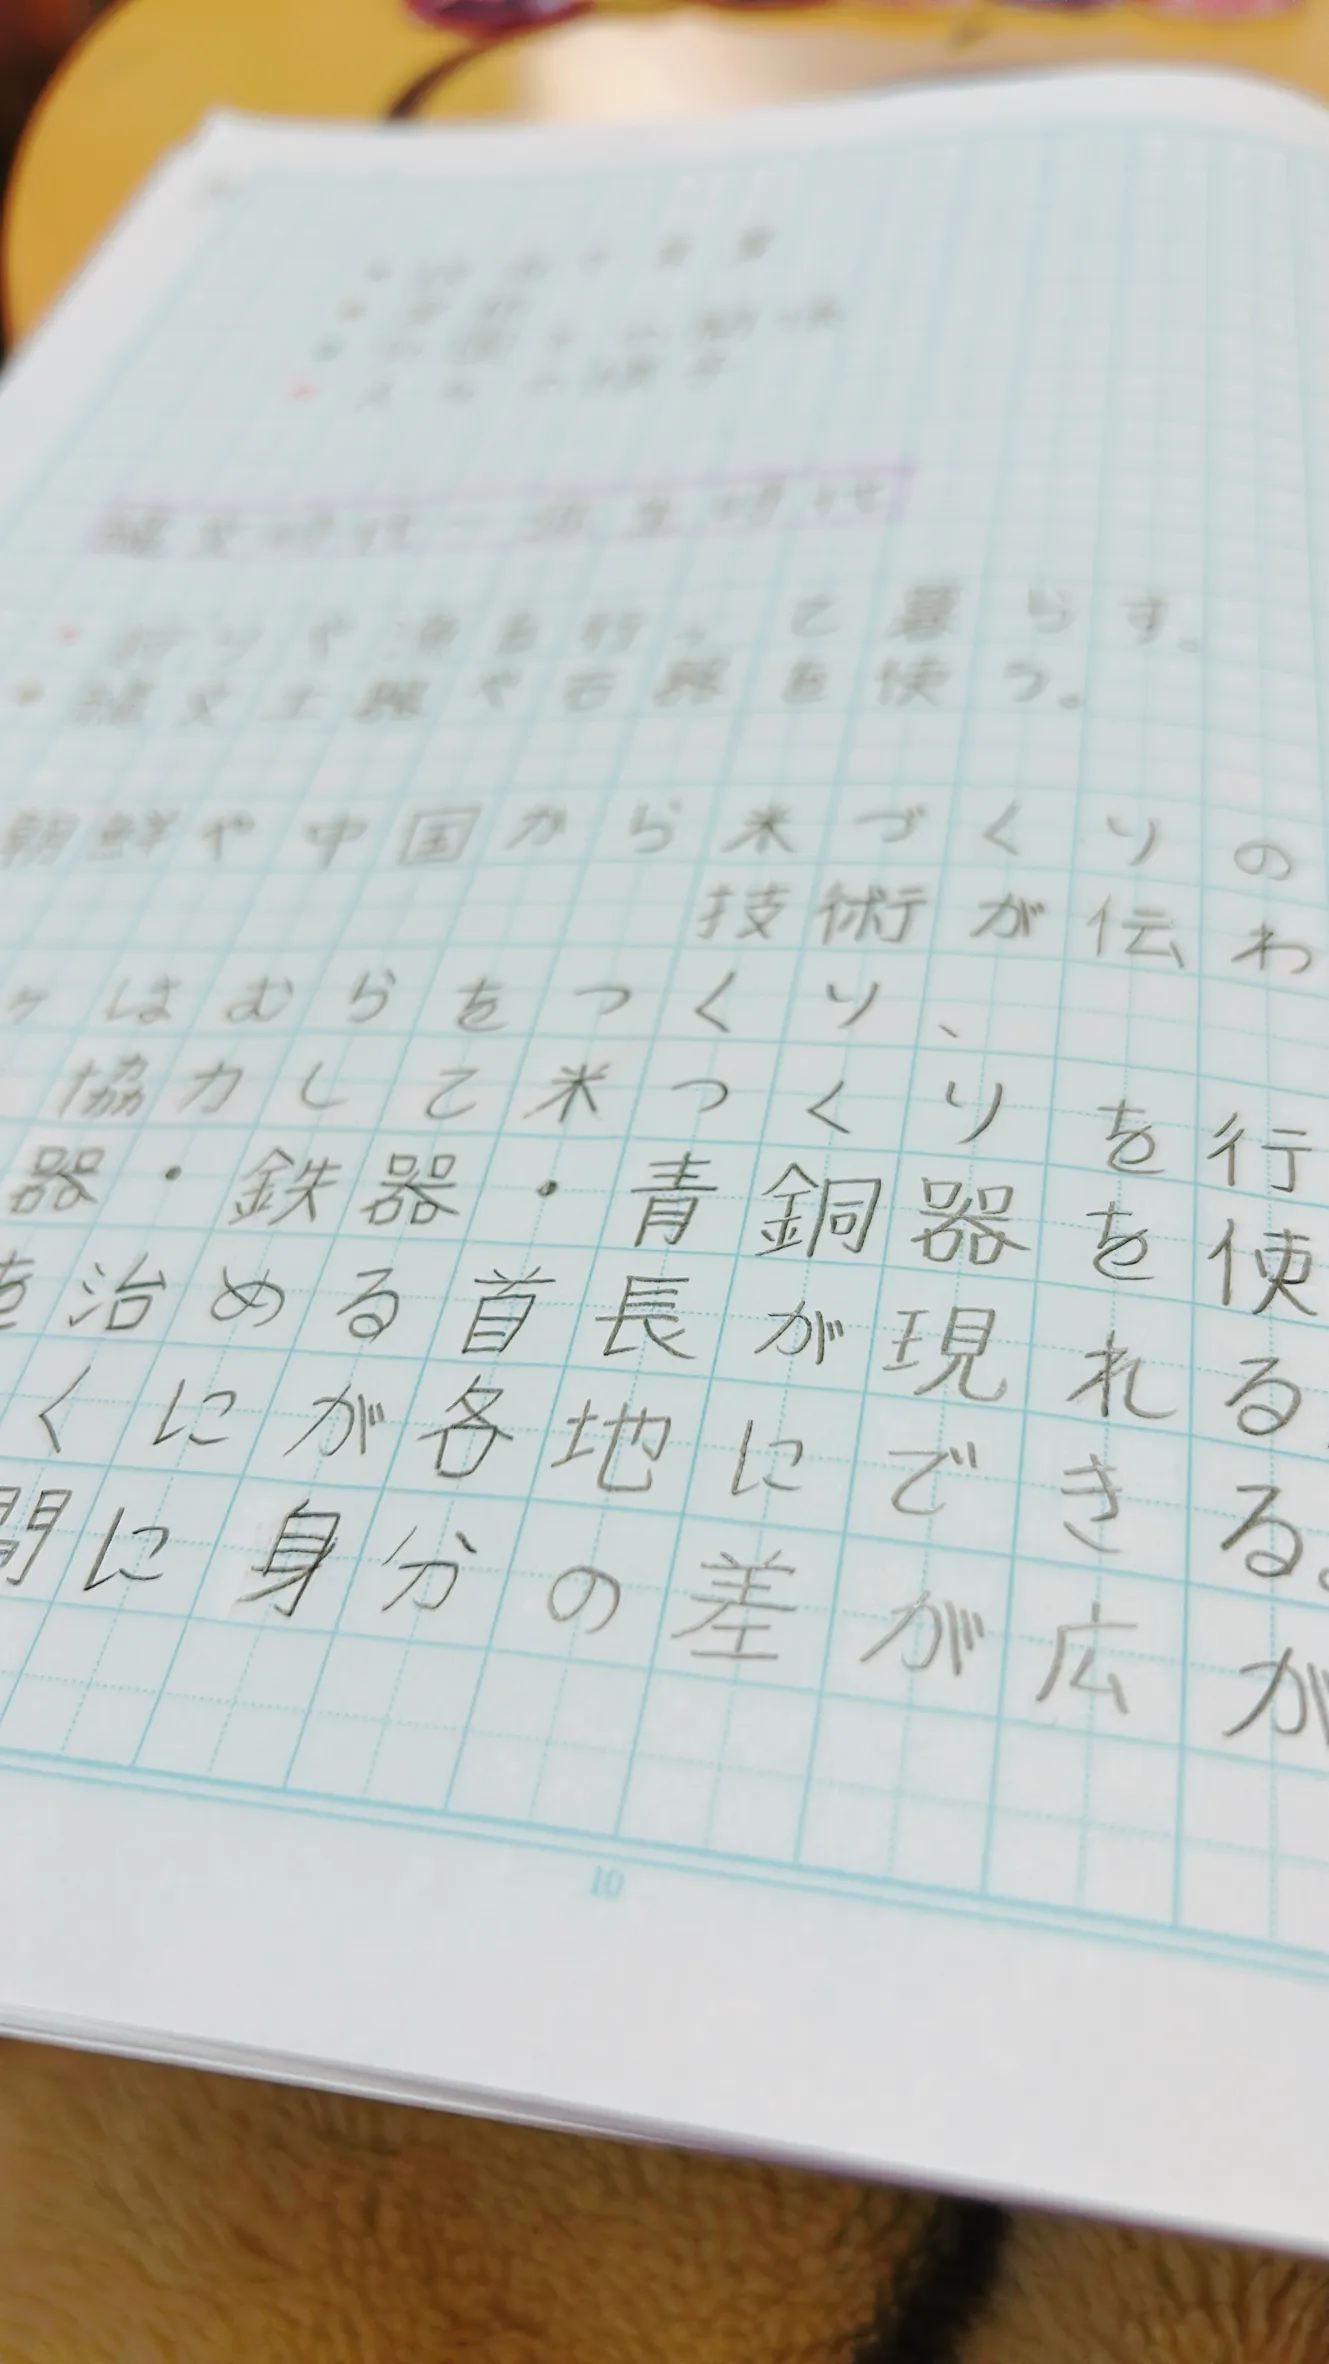 縄文時代〜弥生時代
・狩りや漁を行って暮らす。
・縄文土器や石器を使う。
朝鮮や中国から米づくりの
技術が伝わ
はむらをつくり、
協力して米つくりを行
器・鉄器・青銅器を使
治める首長が現れる
くにが各地にできる。
間に身分の差が広が
10